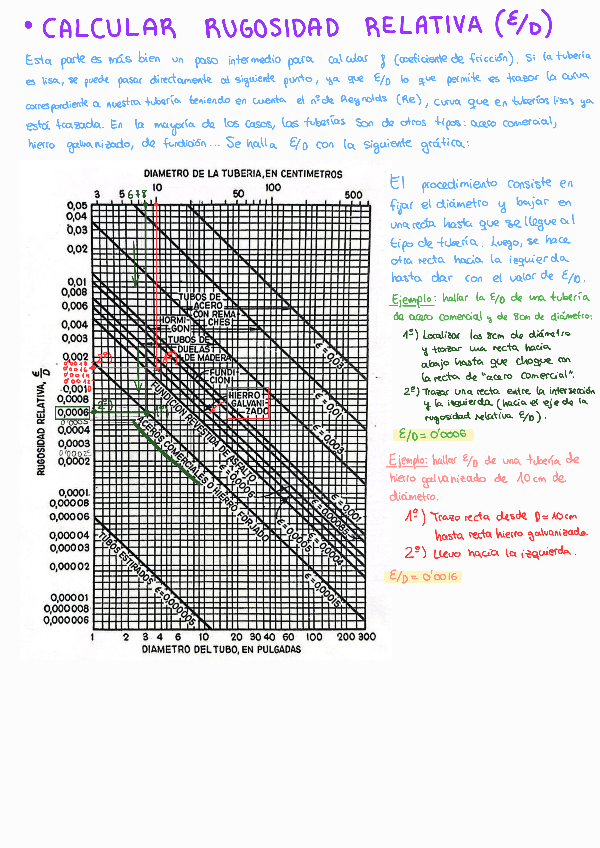 • CALCULAR RUGOSIDAD RELATIVA (ε/D)
Esta parte es más bien un paso intermedio para calcular f (coeficiente de fricción). Si la tubería
es lisa, se puede pasar directamente al siguiente punto, ya que ε/D lo que permite es trazar la curva
correspondiente a nuestra tubería teniendo en cuenta el nº de Reynolds (Re), curva que en tuberías lisas ya
está trazada. En la mayoría de los casos, las tuberías son de otros tipos: acero comercial,
hierro galvanizado, de fundición... Se halla ε/D con la siguiente gráfica:
DIAMETRO DE LA TUBERIA, EN CENTIMETROS
3 5 6 7 8 10 50 100 500
0,05
0,04
0,03
0,02
0,01
0,008
0,006
0,004
0,003
0,002
0,0010
0,0008
0,0006
0,0004
0,0003
0,0002
0,0001
0,00008
0,00006
0,00004
0,00003
0,00002
0,00001
0,000008
0,000006
RUGOSIDAD RELATIVA, ε/D
TUBOS DE
ACERO
CON REMA
CHES
HORMI
GON
TUBOS DE
DUELAS
DE MADERA
FUNDI
CION
HIERRO
GALVANI-
ZADO
FUNDICION REVESTIDA DE ASFALTO
ACEROS COMERCIALES O HIERRO FORJADO
TUBOS ESTIRADOS
ε = 0,000005
ε = 0,05
ε = 0,01
ε = 0,003
ε = 0,001
ε = 0,0006
ε = 0,0005
ε = 0,0004
ε = 0,00015
1 2 3 4 6 10 20 30 40 60 100 200 300
DIAMETRO DEL TUBO, EN PULGADAS
El procedimiento consiste en
fijar el diámetro y bajar en
una recta hasta que se llegue al
tipo de tubería. Luego, se hace
otra recta hacia la izquierda
hasta dar con el valor de ε/D.
Ejemplo: hallar la ε/D de una tubería
de acero comercial y de 8cm de diámetro:
1º) Localizar los 8cm de diámetro
y trazar una recta hacia
abajo hasta que choque con
la recta de "acero comercial".
2º) Trazar una recta entre la intersección
y la izquierda (hacia el eje de la
rugosidad relativa ε/D).
ε/D = 0'0006
Ejemplo: hallar ε/D de una tubería de
hierro galvanizado de 10 cm de
diámetro.
1º) Trazo recta desde D = 10cm
hasta recta hierro galvanizado.
2º) Llevo hacia la izquierda.
ε/D = 0'0016